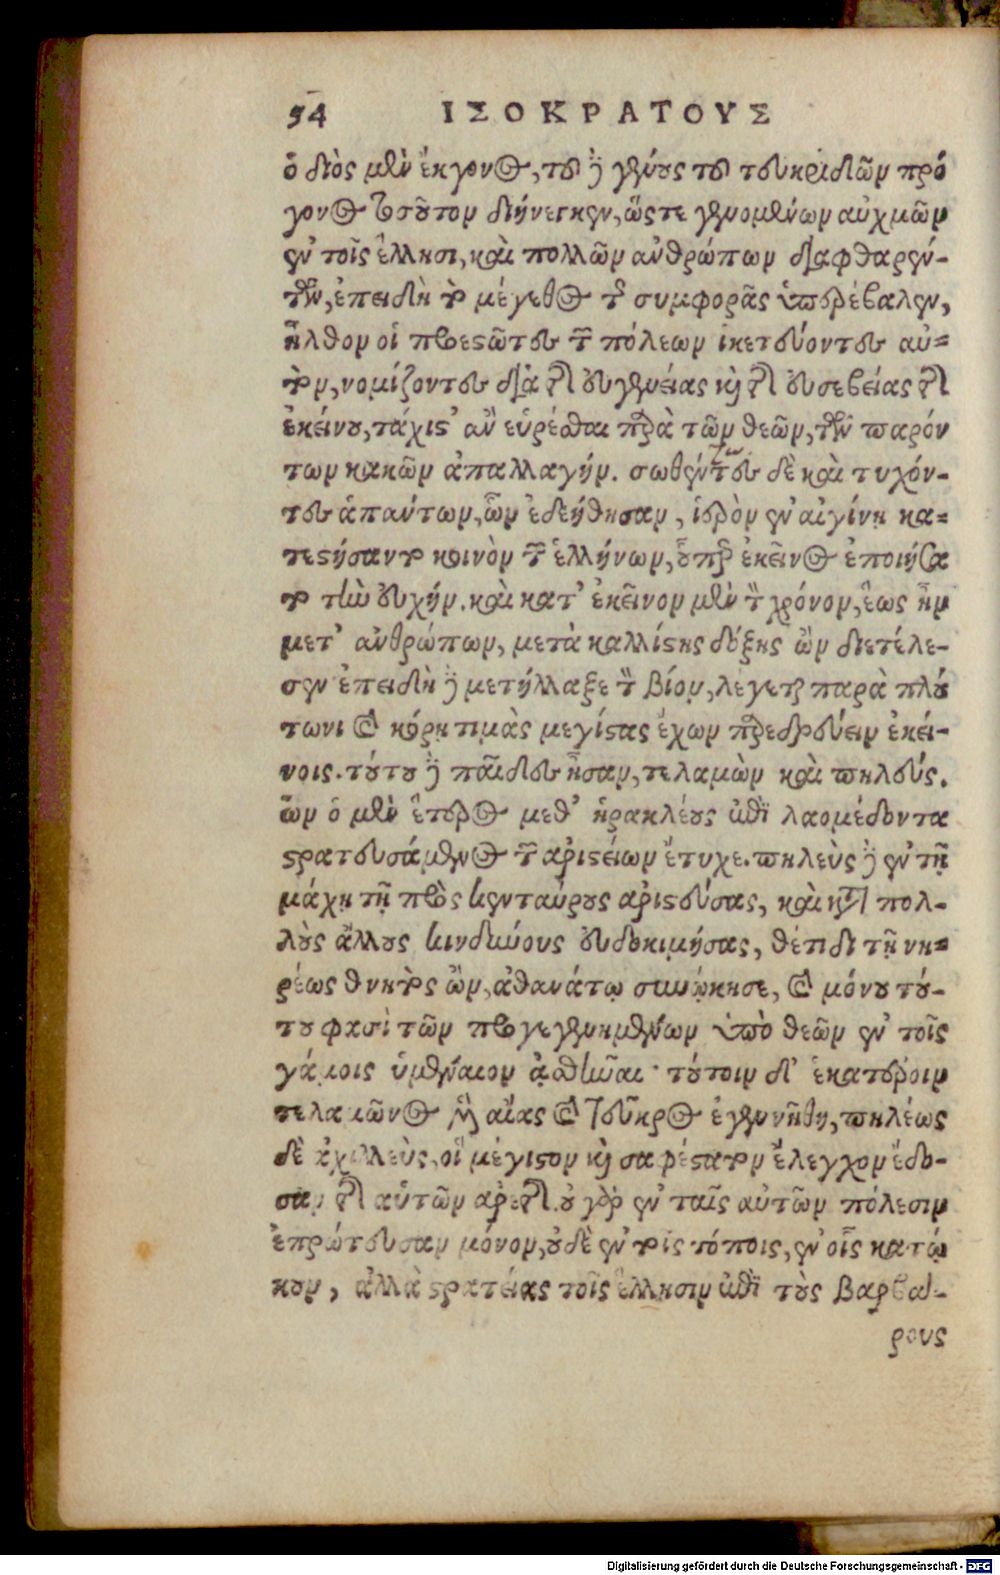 54 ΙΣΟΚΡΑΤΟΥΣ
ὁ διὸς μὲν ἔκγονος, τοῦ δὲ γένους τοῦ τευκριδῶν πρό
γονος τοσοῦτον διήνεγκεν, ὥστε γενομένων αὐχμῶν
ἐν τοῖς ἕλλησι, καὶ πολλῶν ἀνθρώπων διαφθαρέν-
των, ἐπειδὴ τὸ μέγεθος τῆς συμφορᾶς ὑπερέβαλεν,
ἦλθον οἱ προεστῶτες τῶν πόλεων ἱκετεύοντες αὐ-
τὸν, νομίζοντες διὰ τῆς εὐγενείας καὶ τῆς εὐσεβείας τῆς
ἐκείνου, τάχιστ' ἂν εὑρέσθαι παρὰ τῶν θεῶν, τῶν παρόν
των κακῶν ἀπαλλαγήν. σωθέντες δὲ καὶ τυχόν-
τες ἁπάντων, ὧν ἐδεήθησαν, ἱερὸν ἐν αἰγίνῃ κα-
τεστήσαντο κοινὸν τῶν ἑλλήνων, οὗπερ ἐκεῖνος ἐποιήσα
το τὴν εὐχήν. καὶ κατ' ἐκεῖνον μὲν τὸν χρόνον, ἕως ἦν
μετ' ἀνθρώπων, μετὰ καλλίστης δόξης ὢν διετέλε-
σεν ἐπειδὴ δὲ μετήλλαξε τὸν βίον, λέγεται παρὰ πλού
τωνι καὶ κόρῃ τιμὰς μεγίστας ἔχων παρεδρεύειν ἐκεί-
νοις. τούτου δὲ παῖδες ἦσαν, τελαμὼν καὶ πηλεύς.
ὧν ὁ μὲν ἕτερος μεθ' ἡρακλέους ἐπὶ λαομέδοντα
στρατευσάμενος τῶν ἀριστείων ἔτυχε. πηλεὺς δὲ ἐν τῇ
μάχῃ τῇ πρὸς κενταύρους ἀριστεύσας, καὶ κατὰ πολ-
λοὺς ἄλλους κινδύνους εὐδοκιμήσας, θέτιδι τῇ νη-
ρέως θνητὸς ὢν, ἀθανάτῳ συνῴκησε, καὶ μόνου τού-
του φασὶ τῶν προγεγενημένων ὑπὸ θεῶν ἐν τοῖς
γάμοις ὑμέναιον ᾀσθῆναι· τούτοιν δ' ἑκατέροιν
τελαμῶνος μὲν αἴας καὶ τεῦκρος ἐγεννήθη, πηλέως
δὲ ἀχιλλεὺς, οἳ μέγιστον καὶ σαφέστατον ἔλεγχον ἔδο-
σαν τῆς αὑτῶν ἀρετῆς. οὐ γὰρ ἐν ταῖς αὑτῶν πόλεσιν
ἐπρώτευσαν μόνον, οὐδὲ ἐν τοῖς τόποις, ἐν οἷς κατῴ
κουν, ἀλλὰ στρατείας τοῖς ἕλλησιν ἐπὶ τοὺς βαρβά-
ρους
Digitalisierung gefördert durch die Deutsche Forschungsgemeinschaft - DFG